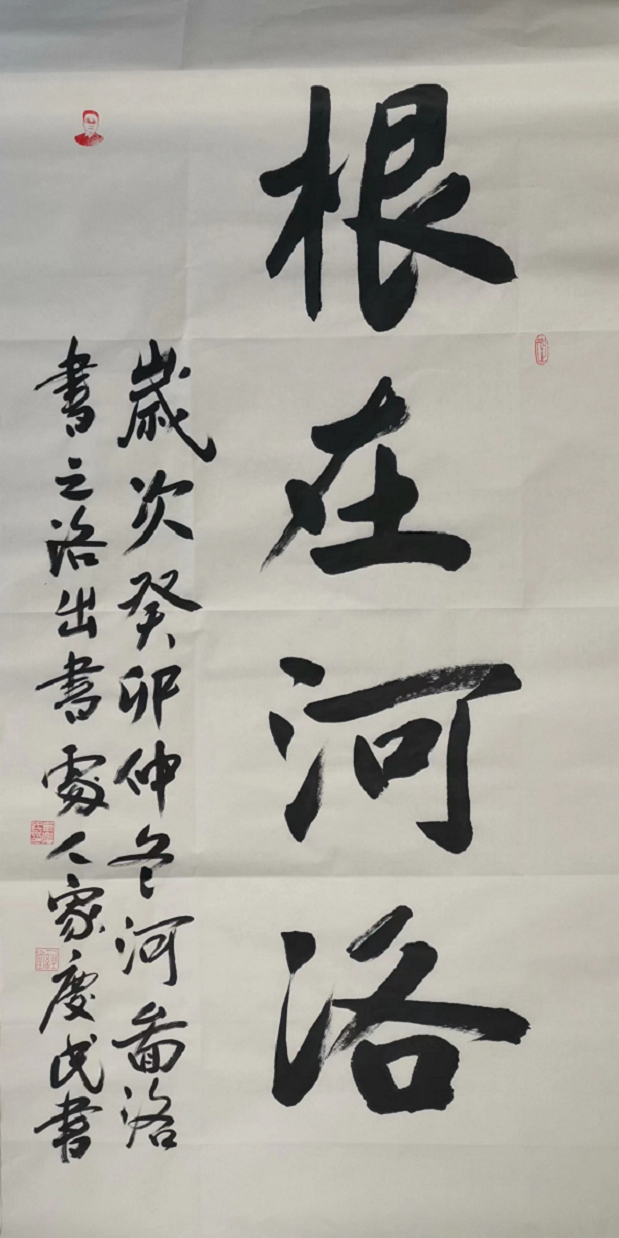 根在河洛
歲次癸卯仲冬河啚洛
書之洛出書處人家慶民書